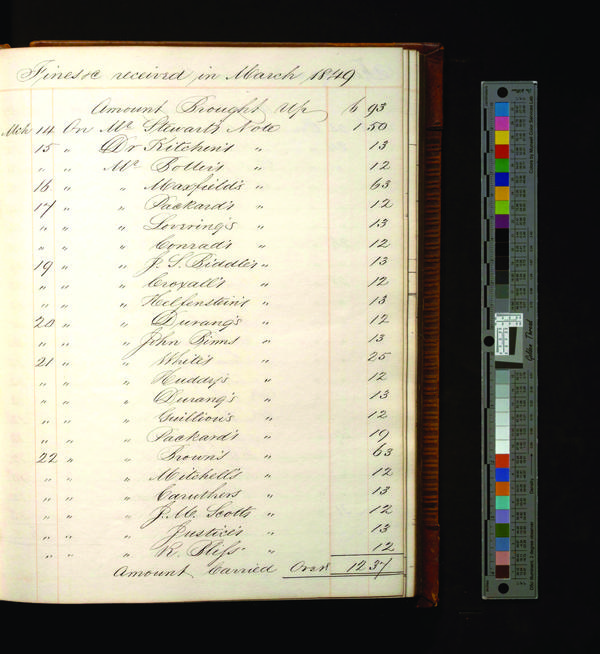 Fines &c received in March 1849
Amount Brought Up 6 93
Mch 14 On Mr Stewart's Note 1 50
15 " Dr Kitchen's " 13
" " Mr Botter's " 12
16 " " Maxfield's " 63
17 " " Packard's " 12
" " " Lovering's " 13
" " " Conrad's " 12
19 " " J. S. Riddle's " 13
" " " Croxall's " 12
" " " Helfenstein's " 13
20 " " Durang's " 12
" " " John Binns " 13
21 " " White's " 25
" " " Huddy's " 12
" " " Durang's " 13
" " " Guillion's " 12
" " " Packard's " 19
22 " " Brown's " 63
" " " Mitchell's " 12
" " " Caruthers " 13
" " " J. M. Scott's " 12
" " " Justice's " 13
" " " " 12
Amount Carried Over 12 37
Golden Thread